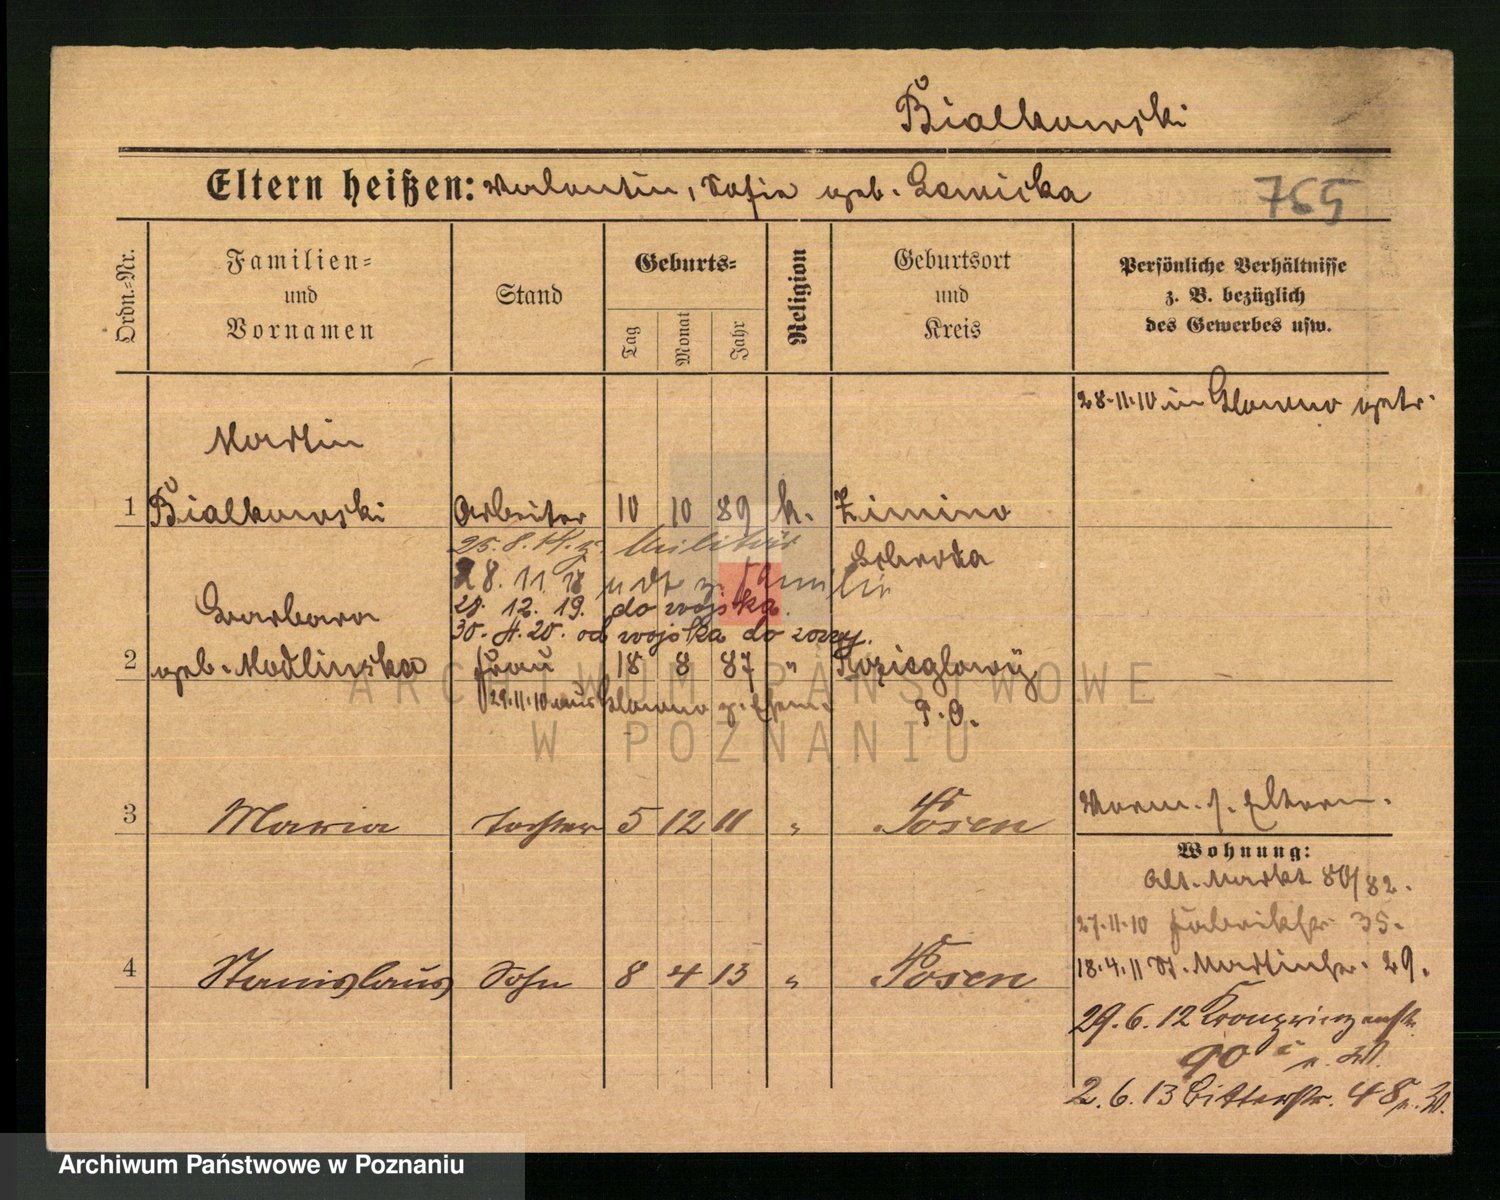 Bialkowski
Eltern heißen: Valentin, Sofia geb. Lemicka
765
Ordn.-Nr.
Familien-
und
Vornamen
Stand
Geburts-
Tag
Monat
Jahr
Religion
Geburtsort
und
Kreis
Persönliche Verhältnisse
z. B. bezüglich
des Gewerbes usw.
28.11.10 in Glowno getr.
Martin
1 Bialkowski Arbeiter 10 10 89 k. Zimino
25.8.14. z. Militär
Schroda
28.11.18 zur Familie
Barbara
28. 12. 19. do wojska.
30. 4. 20. od wojska do żony.
2 geb. Modlinska Frau 18 8 87 " Kozieglowy
29.11.10 aus Glowno z. Ehem.
P. O.
3 Maria Tochter 5 12 11 " Posen
Vorm. s. Eltern.
Wohnung:
Alt. Markt 80/82.
27.11.10 Fabrikstr. 35.
18.4.11 St. Martinstr. 29.
4 Stanislaus Sohn 8 4 13 " Posen
29.6.12 Kronprinzenstr.
90 b. W.
2.6.13 Bitterstr. 48 b. W.
ARCHIWUM PAŃSTWOWE
W POZNANIU
Archiwum Państwowe w Poznaniu